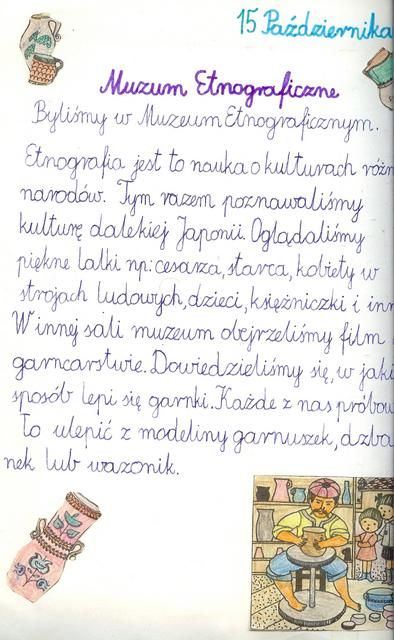 15 Października
Muzum Etnograficzne
Byliśmy w Muzeum Etnograficznym.
Etnografia jest to nauka o kulturach różn
narodów. Tym razem poznawaliśmy
kulturę dalekiej Japonii. Oglądaliśmy
piękne lalki np: cesarza, starca, kobiety w
strojach ludowych, dzieci, księżniczki i inn
W innej sali muzeum obejrzeliśmy film
garncarstwie. Dowiedzieliśmy się, w jaki
sposób lepi się garnki. Każde z nas próbow
ło ulepić z modeliny garnuszek, dzba
nek lub wazonik.